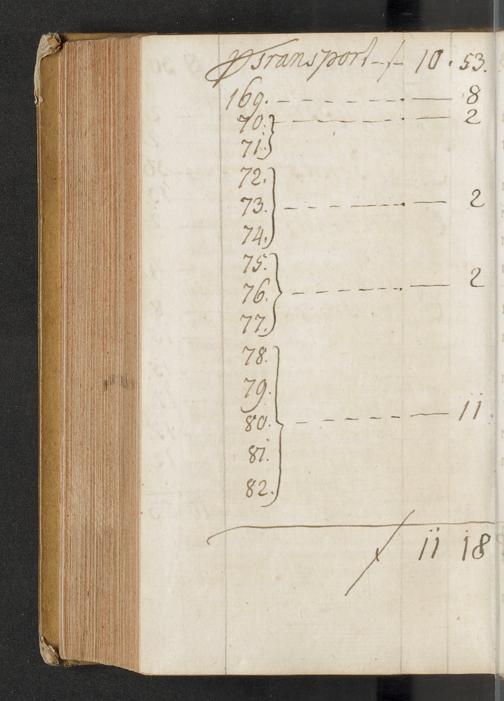 Transport -/- 10.53.
169. - - - - - 8
70. - - - - - 2
71.
72.
73. - - - - - 2
74.
75.
76. - - - - - 2
77.
78.
79.
80. - - - - - 11
81.
82.
/ 11 18